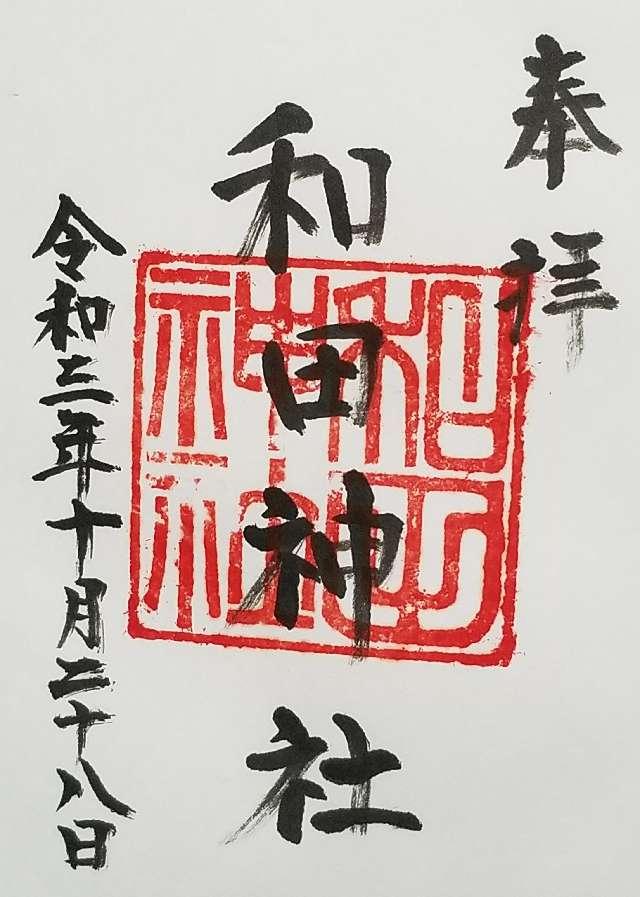 奉拝
和田神社
和田神社
令和三年十月二十八日